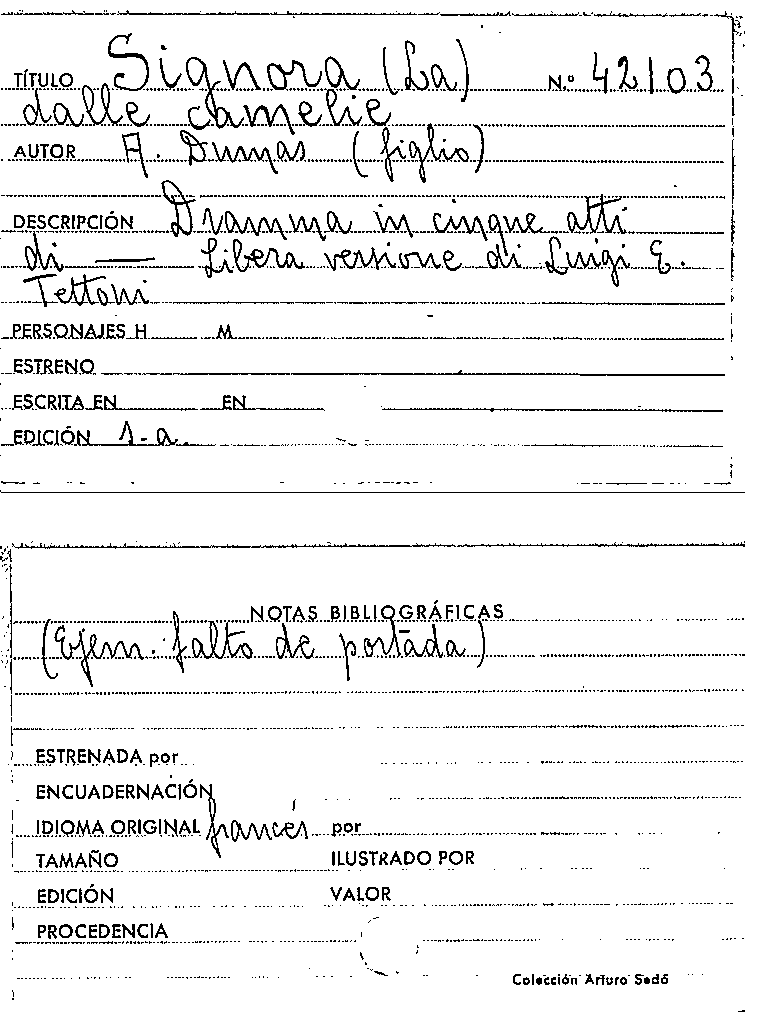 TÍTULO Signora (La) N.º 42103
dalle camelie
AUTOR A. Dumas (figlio)
DESCRIPCIÓN Dramma in cinque atti
di — Libera versione di Luigi E.
Tettoni
PERSONAJES H M
ESTRENO
ESCRITA EN EN
EDICIÓN 1-a.
NOTAS BIBLIOGRÁFICAS
(Ejem. falto de portada)
ESTRENADA por
ENCUADERNACIÓN
IDIOMA ORIGINAL francés por
TAMAÑO ILUSTRADO POR
EDICIÓN VALOR
PROCEDENCIA
Colección Arturo Sedó